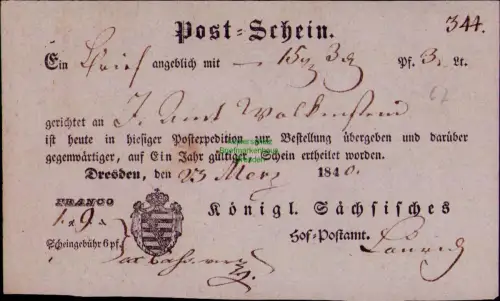 Post-Schein. 344.
Ein Brief angeblich mit — 15 g 3 d Pf. 3. Lt.
62
gerichtet an J. Amt Wolkenstein
ist heute in hiesiger Postexpedition zur Bestellung übergeben und darüber
gegenwärtiger, auf Ein Jahr gültiger, Schein ertheilt worden.
Dresden, den 23 März 1840.
FRANCO
1. 9.
Königl. Sächsisches
Scheingebühr 6 pf.
Hof-Postamt.